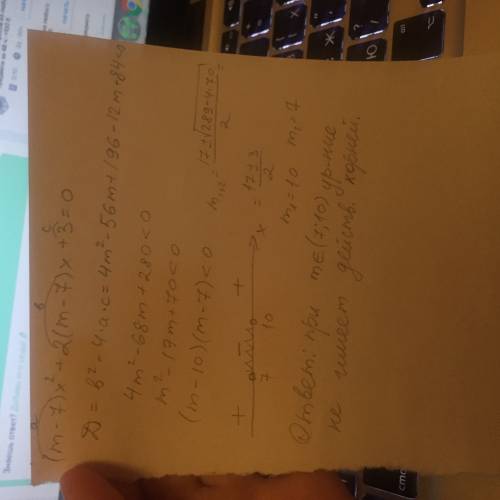 a b c
(m-7)x²+2(m-7)x+3=0
D=b²-4·a·c=4m²-56m+196-12m+84<0
4m²-68m+280<0
m²-17m+70<0
(m-10)(m-7)<0
m₁,₂=17±√289-4·70/2=
=17±3/2
+ - +
7 10 x
m₂=10 m₁=7
Ответ: при m∈(7;10) ур-ние
не имеет действ. корней.